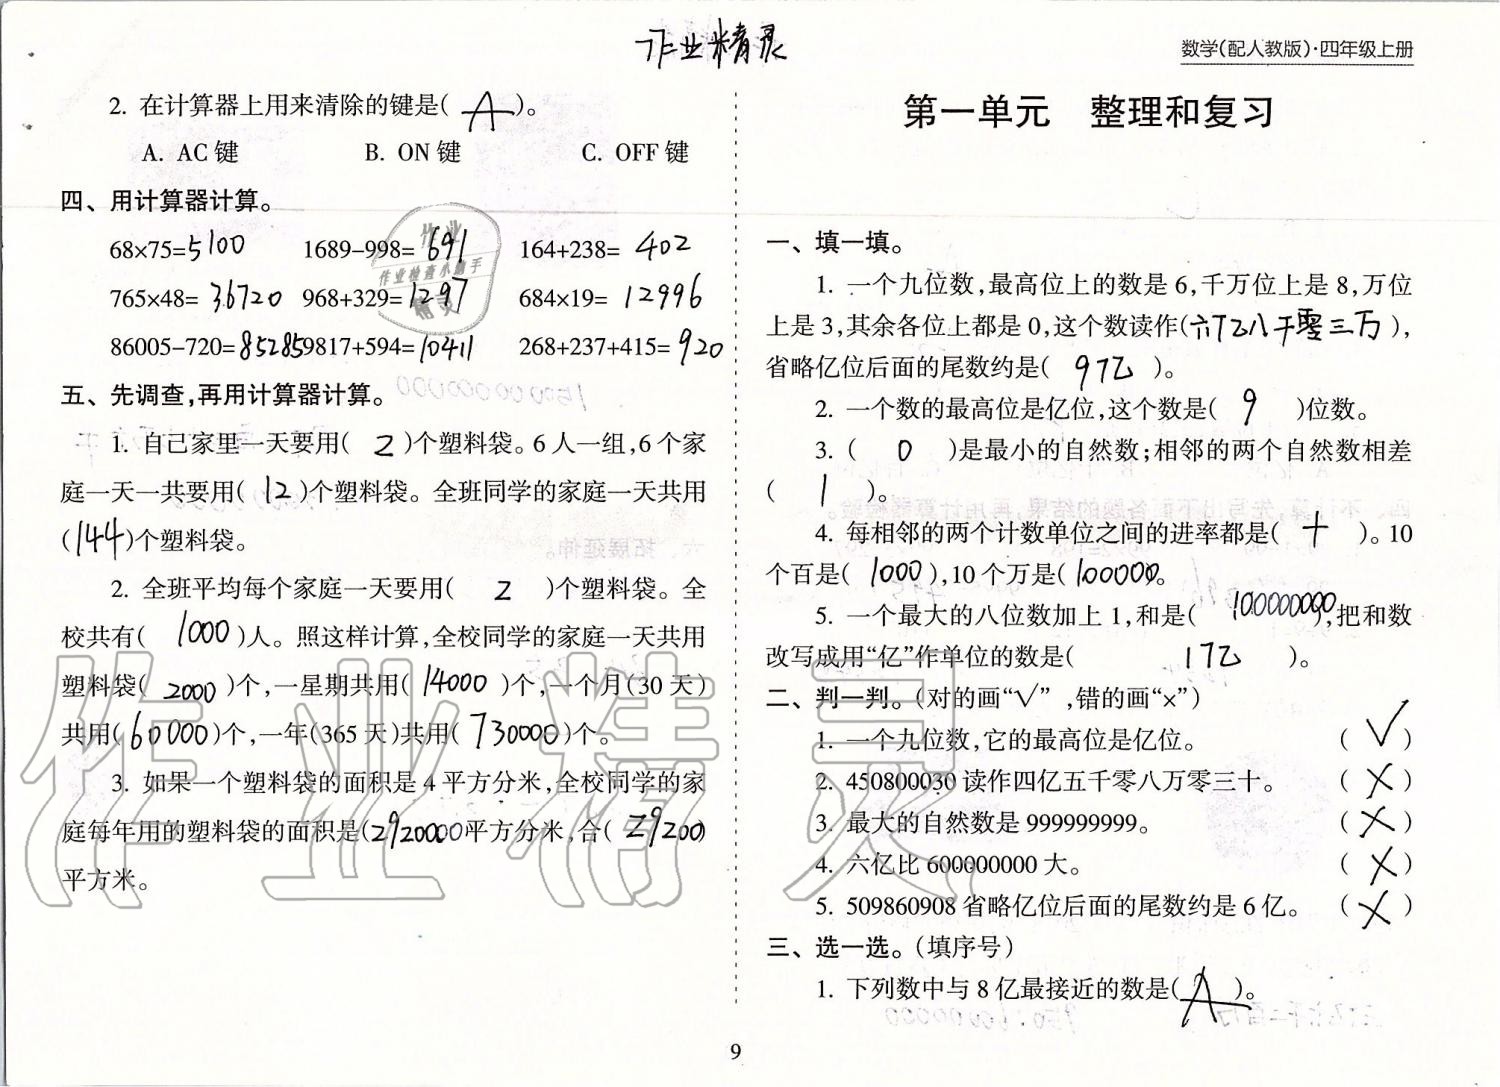 作业精灵
数学(配人教版)·四年级上册
2. 在计算器上用来清除的键是( A )。
A. AC 键 B. ON 键 C. OFF 键
四、用计算器计算。
68×75=5100 1689-998=691 164+238=402
765×48=36720 968+329=1297 684×19=12996
86005-720=85285 9817+594=10411 268+237+415=920
五、先调查,再用计算器计算。
1. 自己家里一天要用( 2 )个塑料袋。6 人一组,6 个家
庭一天一共要用( 12 )个塑料袋。全班同学的家庭一天共用
(144)个塑料袋。
2. 全班平均每个家庭一天要用( 2 )个塑料袋。全
校共有( 1000 )人。照这样计算,全校同学的家庭一天共用
塑料袋( 2000 )个,一星期共用( 14000 )个,一个月(30 天)
共用(60000)个,一年(365 天)共用( 730000)个。
3. 如果一个塑料袋的面积是 4 平方分米,全校同学的家
庭每年用的塑料袋的面积是(2920000平方分米,合( 29200)
平方米。
作业
作业检查小助手
精灵
作业精灵
第一单元 整理和复习
一、填一填。
1. 一个九位数,最高位上的数是 6,千万位上是 8,万位
上是 3,其余各位上都是 0,这个数读作(六亿八千零三万),
省略亿位后面的尾数约是( 9亿 )。
2. 一个数的最高位是亿位,这个数是( 9 )位数。
3. ( 0 )是最小的自然数;相邻的两个自然数相差
( 1 )。
4. 每相邻的两个计数单位之间的进率都是( 十 )。10
个百是( 1000 ),10 个万是(100000。
5. 一个最大的八位数加上 1,和是( 100000000),把和数
改写成用“亿”作单位的数是( 1亿 )。
二、判一判。(对的画“√”,错的画“×”)
1. 一个九位数,它的最高位是亿位。 ( √ )
2. 450800030 读作四亿五千零八万零三十。 ( × )
3. 最大的自然数是 999999999。 ( × )
4. 六亿比 600000000 大。 ( × )
5. 509860908 省略亿位后面的尾数约是 6 亿。 ( × )
三、选一选。(填序号)
1. 下列数中与 8 亿最接近的数是( A )。
9